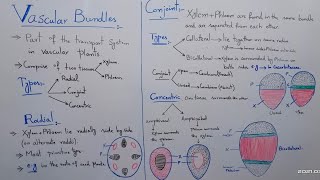 Vascular Bundles:-
→ Part of the transport system
in vascular plants
→ Comprise of two tissues
Xylem
Phloem
Types:-
Radial
Conjoint
Concentric
Radial:-
→ Xylem + Phloem lie radially side by side
(on alternate radii)
→ Most primitive type
→ e.g. in the roots of seed plants
Conjoint:-
Xylem + Phloem are found in the same bundle
and are separated from each other
Types
Collateral → lie together on same radius
Bicollateral → xylem is surrounded by Phloem on
both sides e.g → Cucurbitaceae
Conjoint
open →
closed →
Concentric
One tissue surrounds the other
Amphivasal
Xylem surrounds
the phloem
Amphicribral
phloem surrounds
the xylem
closed
open
Bicollateral